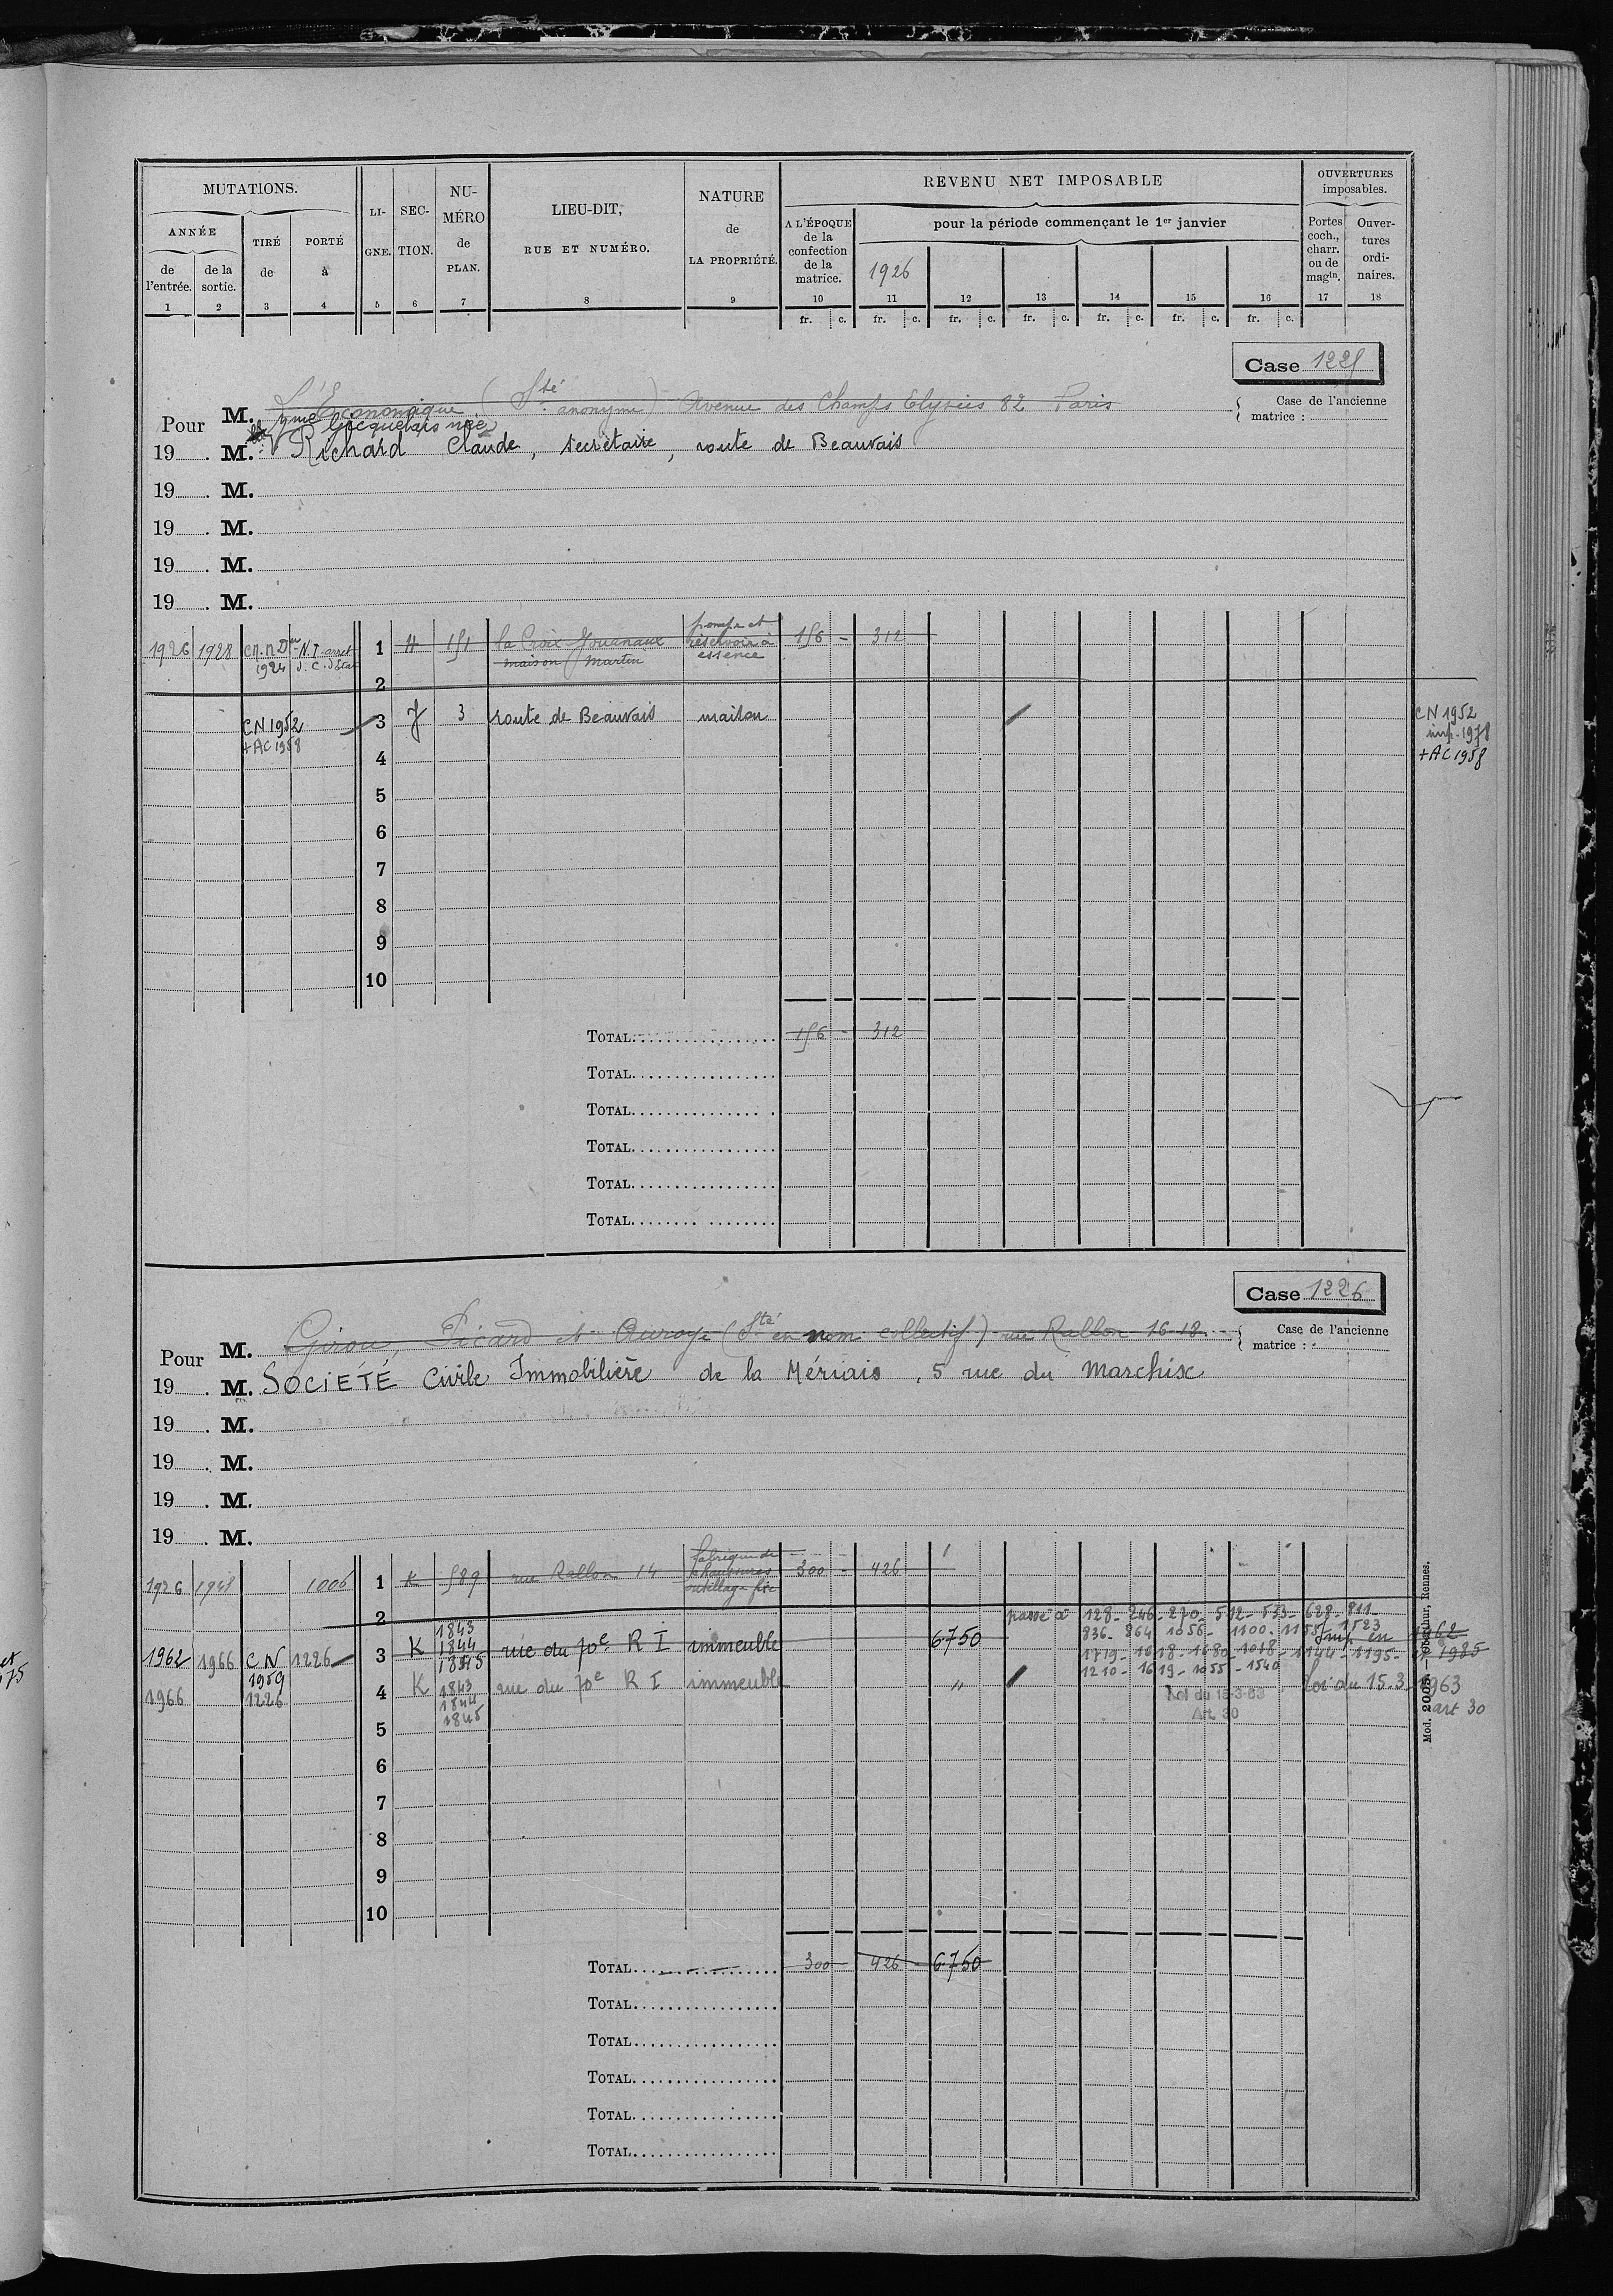 MUTATIONS.
ANNÉE
de l'entrée.
de la sortie.
TIRÉ de
PORTÉ à
LI-GNE.
SEC-TION.
NU-MÉRO de PLAN.
LIEU-DIT,
RUE ET NUMÉRO.
NATURE
de
LA PROPRIÉTÉ.
REVENU NET IMPOSABLE
A L'ÉPOQUE
de la
confection
de la
matrice.
pour la période commençant le 1er janvier
1926
OUVERTURES
imposables.
Portes
coch.,
charr.
ou de
magin.
Ouver-
tures
ordi-
naires.
1 2 3 4 5 6 7 8 9 10 11 12 13 14 15 16 17 18
fr. c. fr. c. fr. c. fr. c. fr. c. fr. c. fr. c.
Case 1225
Pour M. L'Economique (Sté anonyme) Avenue des Champs Elysées 82 Paris
Case de l'ancienne
matrice :
Gicquelais née
19 . M. Richard Claude, secrétaire, route de Beauvais
19 . M.
19 . M.
19 . M.
19 . M.
1926 1928 1924 1 H 151 la Croix Jouanaux maison Martin pompe et réservoir à essence 156 - 312
2
CN 1952 + AC 1958 3 J 3 route de Beauvais maison
CN 1952
imp. 1978
+AC 1958
4
5
6
7
8
9
10
TOTAL 156 - 312
TOTAL
TOTAL
TOTAL
TOTAL
TOTAL
Case 1226
Pour M. Girou, Picard et Auroye (Sté en nom collectif) rue Rallon 16-18
Case de l'ancienne
matrice :
19 . M. SOCIÉTÉ Civile Immobilière de la Mériais, 5 rue du Marchix
19 . M.
19 . M.
19 . M.
19 . M.
1926 1948 1006 1 K 589 rue Rallon 14 fabrique de chaussures outillage fixe 300 - 426
2
passé à 128 - 246 - 270 - 512 - 533 - 628 - 811
836 - 864 1056 - 1100 - 1155 - 1523
1962 1966 CN 1959 1226 3 K 1843 1844 1845 rue du 70e R I immeuble 6750
1719 - 1618 - 1680 - 1018 - 1144 - 1195 -
Imp en 1962
et 1985
1210 - 1619 - 1055 - 1540
1966 1226 4 K 1843 1844 1845 rue du 70e R I immeuble "
Loi du 15-3-63
Art. 30
Loi du 15.3.1963
art 30
5
6
7
8
9
10
TOTAL 300 426 - 6750
TOTAL
TOTAL
TOTAL
TOTAL
TOTAL